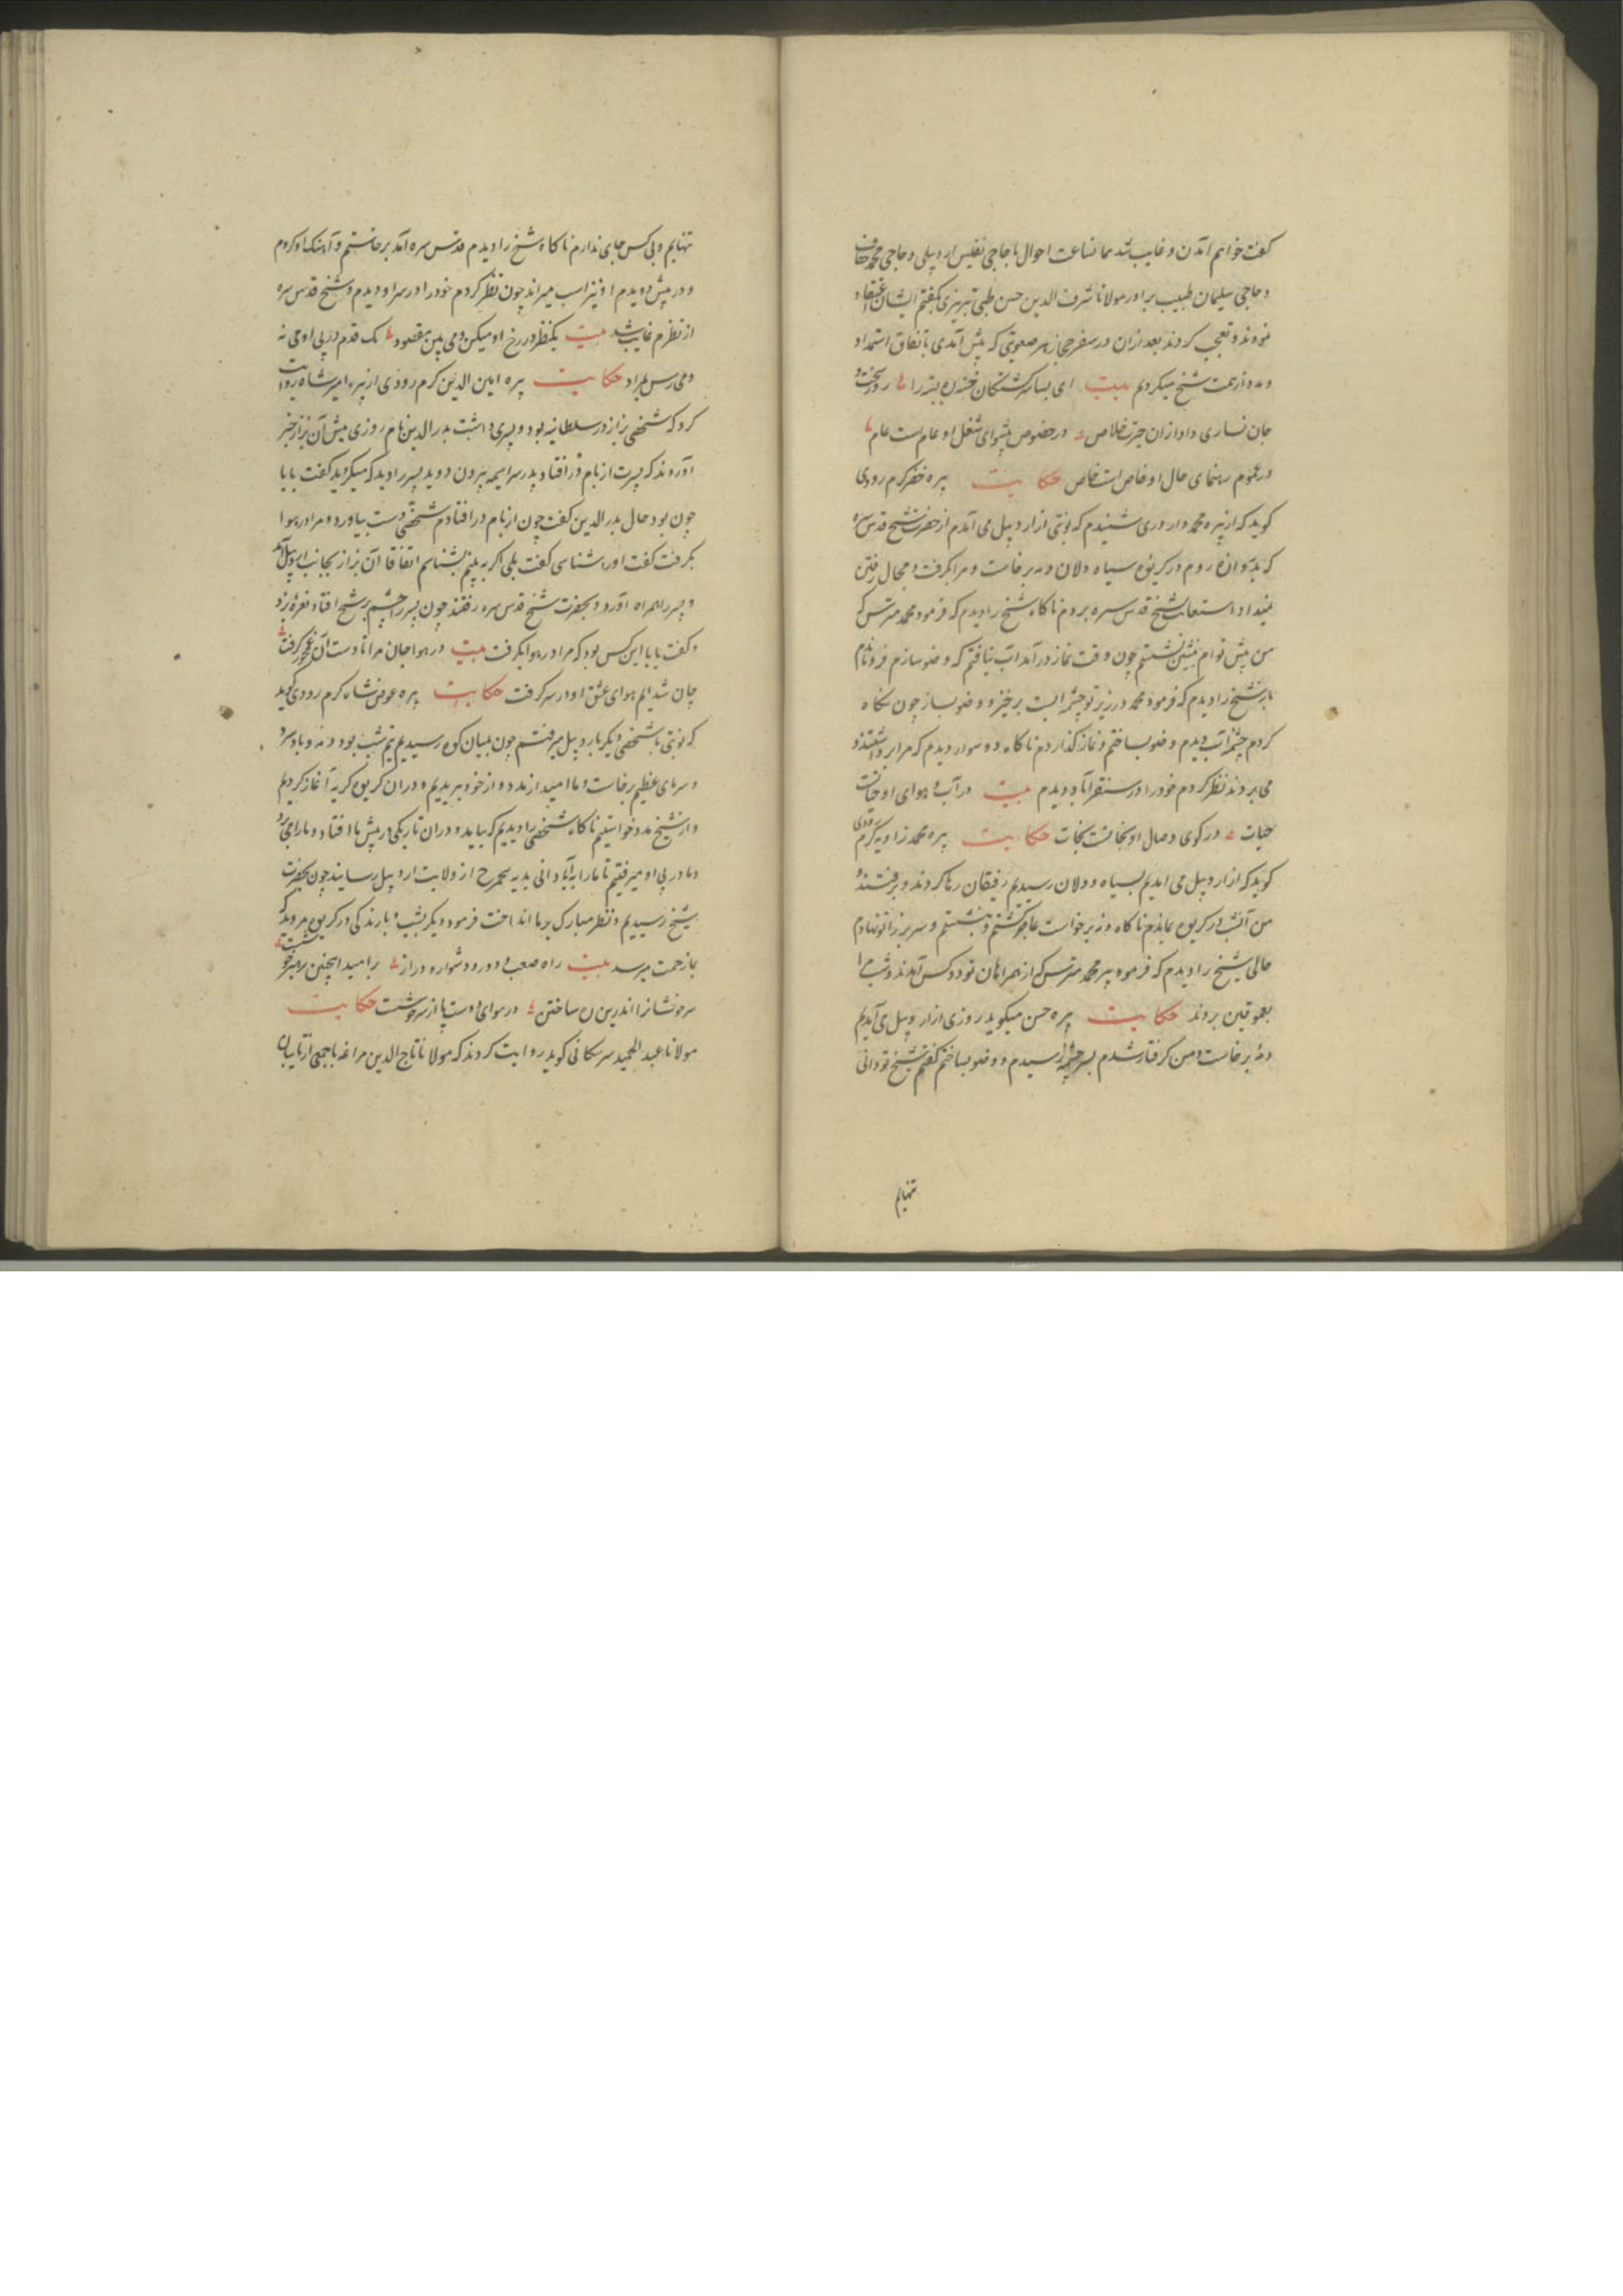 کفت خواهم آمدن و غایب شد همانساعت احوال با حاجی نفیس اردبیلی و حاجی محمد خفاف
و حاجی سلیمان طبیب برادر مولانا شرف الدین حسن طبی تبریزی بکفتم ایشان اعتقاد
نمودند و تعجب کردند بعد ازان در سفر حجاز هر صعوبتی که پیش آمدی باتفاق استمداد
و مدد از همت شیخ میکردیم بیت ای بسا سرکشتکان را روز سخت و
جان نساری داد ازان حیرت خلاص در خصوص پیشوای شغل او عام است عام
در عموم رهنمای حال او خاص است خاص حکایت پیره خضر کرم رودی
کوید که از پیره محمد داروری شنیدم که نوبتی از اردبیل می آمدم از حضرت شیخ قدس سره
که روم در کریوه سیاه دلان دمه برخاست و مرا بکرفت و مجال رفتن
نمیداد استعانت بشیخ قدس سره بردم ناکاه شیخ را دیدم که فرمود محمد مترس که
من پیش توام بنشین نشستم چون وقت نماز درآمد آب نیافتم که وضو سازم فروماندم
باز شیخ را دیدم که فرمود محمد در زیر تو چشمه ایست برخیز و وضو بساز چون نکاه
کردم چشمه آب دیدم وضو بساختم و نماز کذاردم ناکاه دو سوار دیدم که مرا برداشتند و
می بردند نظر کردم خود را در سنقرآباد دیدم بیت در آب و هوای او حیاتست
حیات در کوی وصال او نجاتست نجات حکایت پیره محمد زاویه کرم رودی
کوید که از اردبیل می آمدیم بسیاه دولان رسیدیم رفیقان رها کردند و برفتند و
من آنشب در کریوه بماندم ناکاه دمه برخواست عاجز کشتم و بنشستم و سر بر زانو نهادم
حالی شیخ را دیدم که فرمود پیر محمد مترس که از همراهان تو دو کس آمدند و شب مرا
بعموقین بردند حکایت پیره حسن میکوید روزی از اردبیل می آمدیم
دمه برخاست و من کرفتار شدم بسر چشمه رسیدم و وضو بساختم کفتم شیخ تو دانی
تنهایم
تنهایم و بی کس جای ندارم ناکاه شیخ را دیدم قدس سره آمد برخاستم و آهنک او کردم
و در پیش دویدم او نیز اسب میراند چون نظر کردم خود را در سراو دیدم و شیخ قدس سره
از نظرم غایب شد بیت یکنظر در رخ او میکن و می بین مقصود یک قدم در پی او می نه
و می رس بمراد حکایت پیره امین الدین کرم رودی از پیره امیر شاه روایت
کرد که شخصی بزاز در سلطانیه بود و پسری داشت بدرالدین نام روزی پیش آن بزاز خبر
آوردند که پسرت از بام در افتاد پدر سراسیمه بیرون دوید پسر را دید که میکرید کفت بابا
چون بود حال بدر الدین کفت چون از بام در افتادم شخصی دست بیاورد و مرا در هوا
بکرفت کفت اورا شناسی کفت بلی اکر به بینم بشناسم اتفاقا آن بزاز بجانب اردبیل آمد
و پسر را همراه آورد و بحضرت شیخ قدس سره رفتند چون پسر را چشم بر شیخ افتاد نعره بزد
و کفت بابا این کس بود که مرا در هوا بکرفت بیت در هوا جان مرا تا دست آن کرفت
جان شدایم هوای عشق او در سر کرفت حکایت پیره عوض شاه کرم رودی کوید
که نوبتی با شخصی دیکر باردبیل میرفتم چون بمیان کوه رسیدیم نیم شب بود دمه و باد سرد
و سرمای عظیم برخاست و ما امید از مدد و از خود ببریدیم و دران کریوه کریه آغاز کردیم
و از شیخ مدد خواستیم ناکاه شخصی را دیدیم که بیاید و دران تاریکی در پیش ما افتاد و ما را می برد
و ما در پی او میرفتیم تا ما را بآبادانی بدیه از ولایت اردبیل رسانید چون بحضرت
شیخ رسیدیم و نظر مبارک بر ما انداخت فرمود دیکر بشب و بارندکی در کریوه مروید که
بما زحمت میرسد بیت راه صعب و دور و دشوار و دراز بر امید اینچنین رهبر خوشست
سر فشانرا اندرین ره ساختن در هوای دوست پا از سر خوشست حکایت
مولانا عبد الحمید سرسکانی کوید روایت کردند که مولانا تاج الدین مراغه با جمعی از تایبان